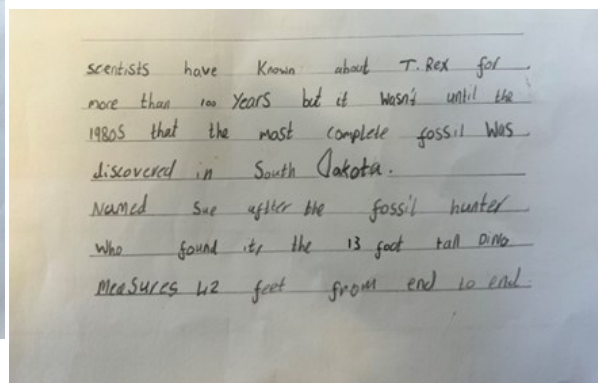 scentists have known about T. Rex for
more than 100 Years but it wasn't until the
1980s that the most complete fossil was
discovered in South Dakota.
Named Sue aflter the fossil hunter
Who found it, the 13 foot tall Dino
MeaSures 42 feet from end to end.